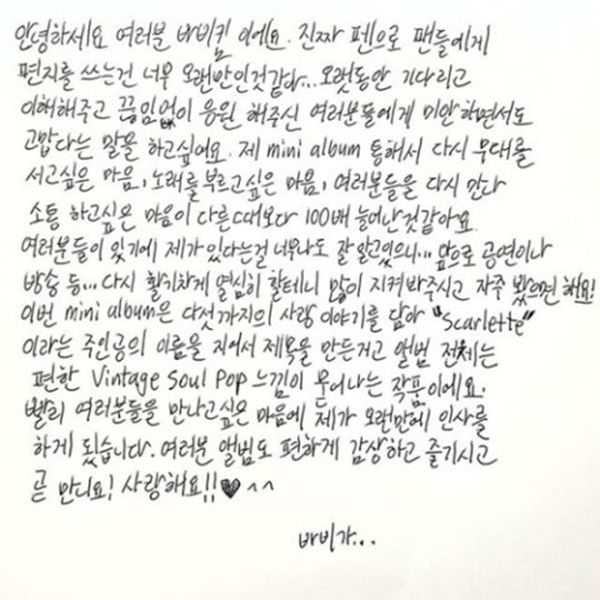 안녕하세요 여러분 바비킴 이에요. 진짜 펜으로 팬들에게
편지를 쓰는건 너무 오랜만인것같다... 오랫동안 기다리고
이해해주고 끊임없이 응원 해주신 여러분들에게 미안하면서도
고맙다는 말을 하고싶어요. 제 mini album 통해서 다시 무대를
서고싶은 마음, 노래를부르고싶은 마음, 여러분들을 다시 만나
소통 하고싶은 마음이 다른때보다 100배 늘어난것같아요.
여러분들이 있기에 제가있다는걸 너무나도 잘알고있으니... 앞으로 공연이나
방송 등... 다시 활기차게 열심히 할테니 많이 지켜봐주시고 자주 봤으면 해요!
이번 mini album은 다섯가지의 사랑 이야기를 담아 "Scarlette"
이라는 주인공의 이름을 지어서 제목을 만든거고 앨범 전체는
편한 Vintage Soul Pop 느낌이 묻어나는 작품이에요.
빨리 여러분들을 만나고싶은 마음에 제가 오랜만에 인사를
하게 됬습니다. 여러분 앨범도 편하게 감상하고 즐기시고
곧 만나요! 사랑해요!!♥^^
바비가...